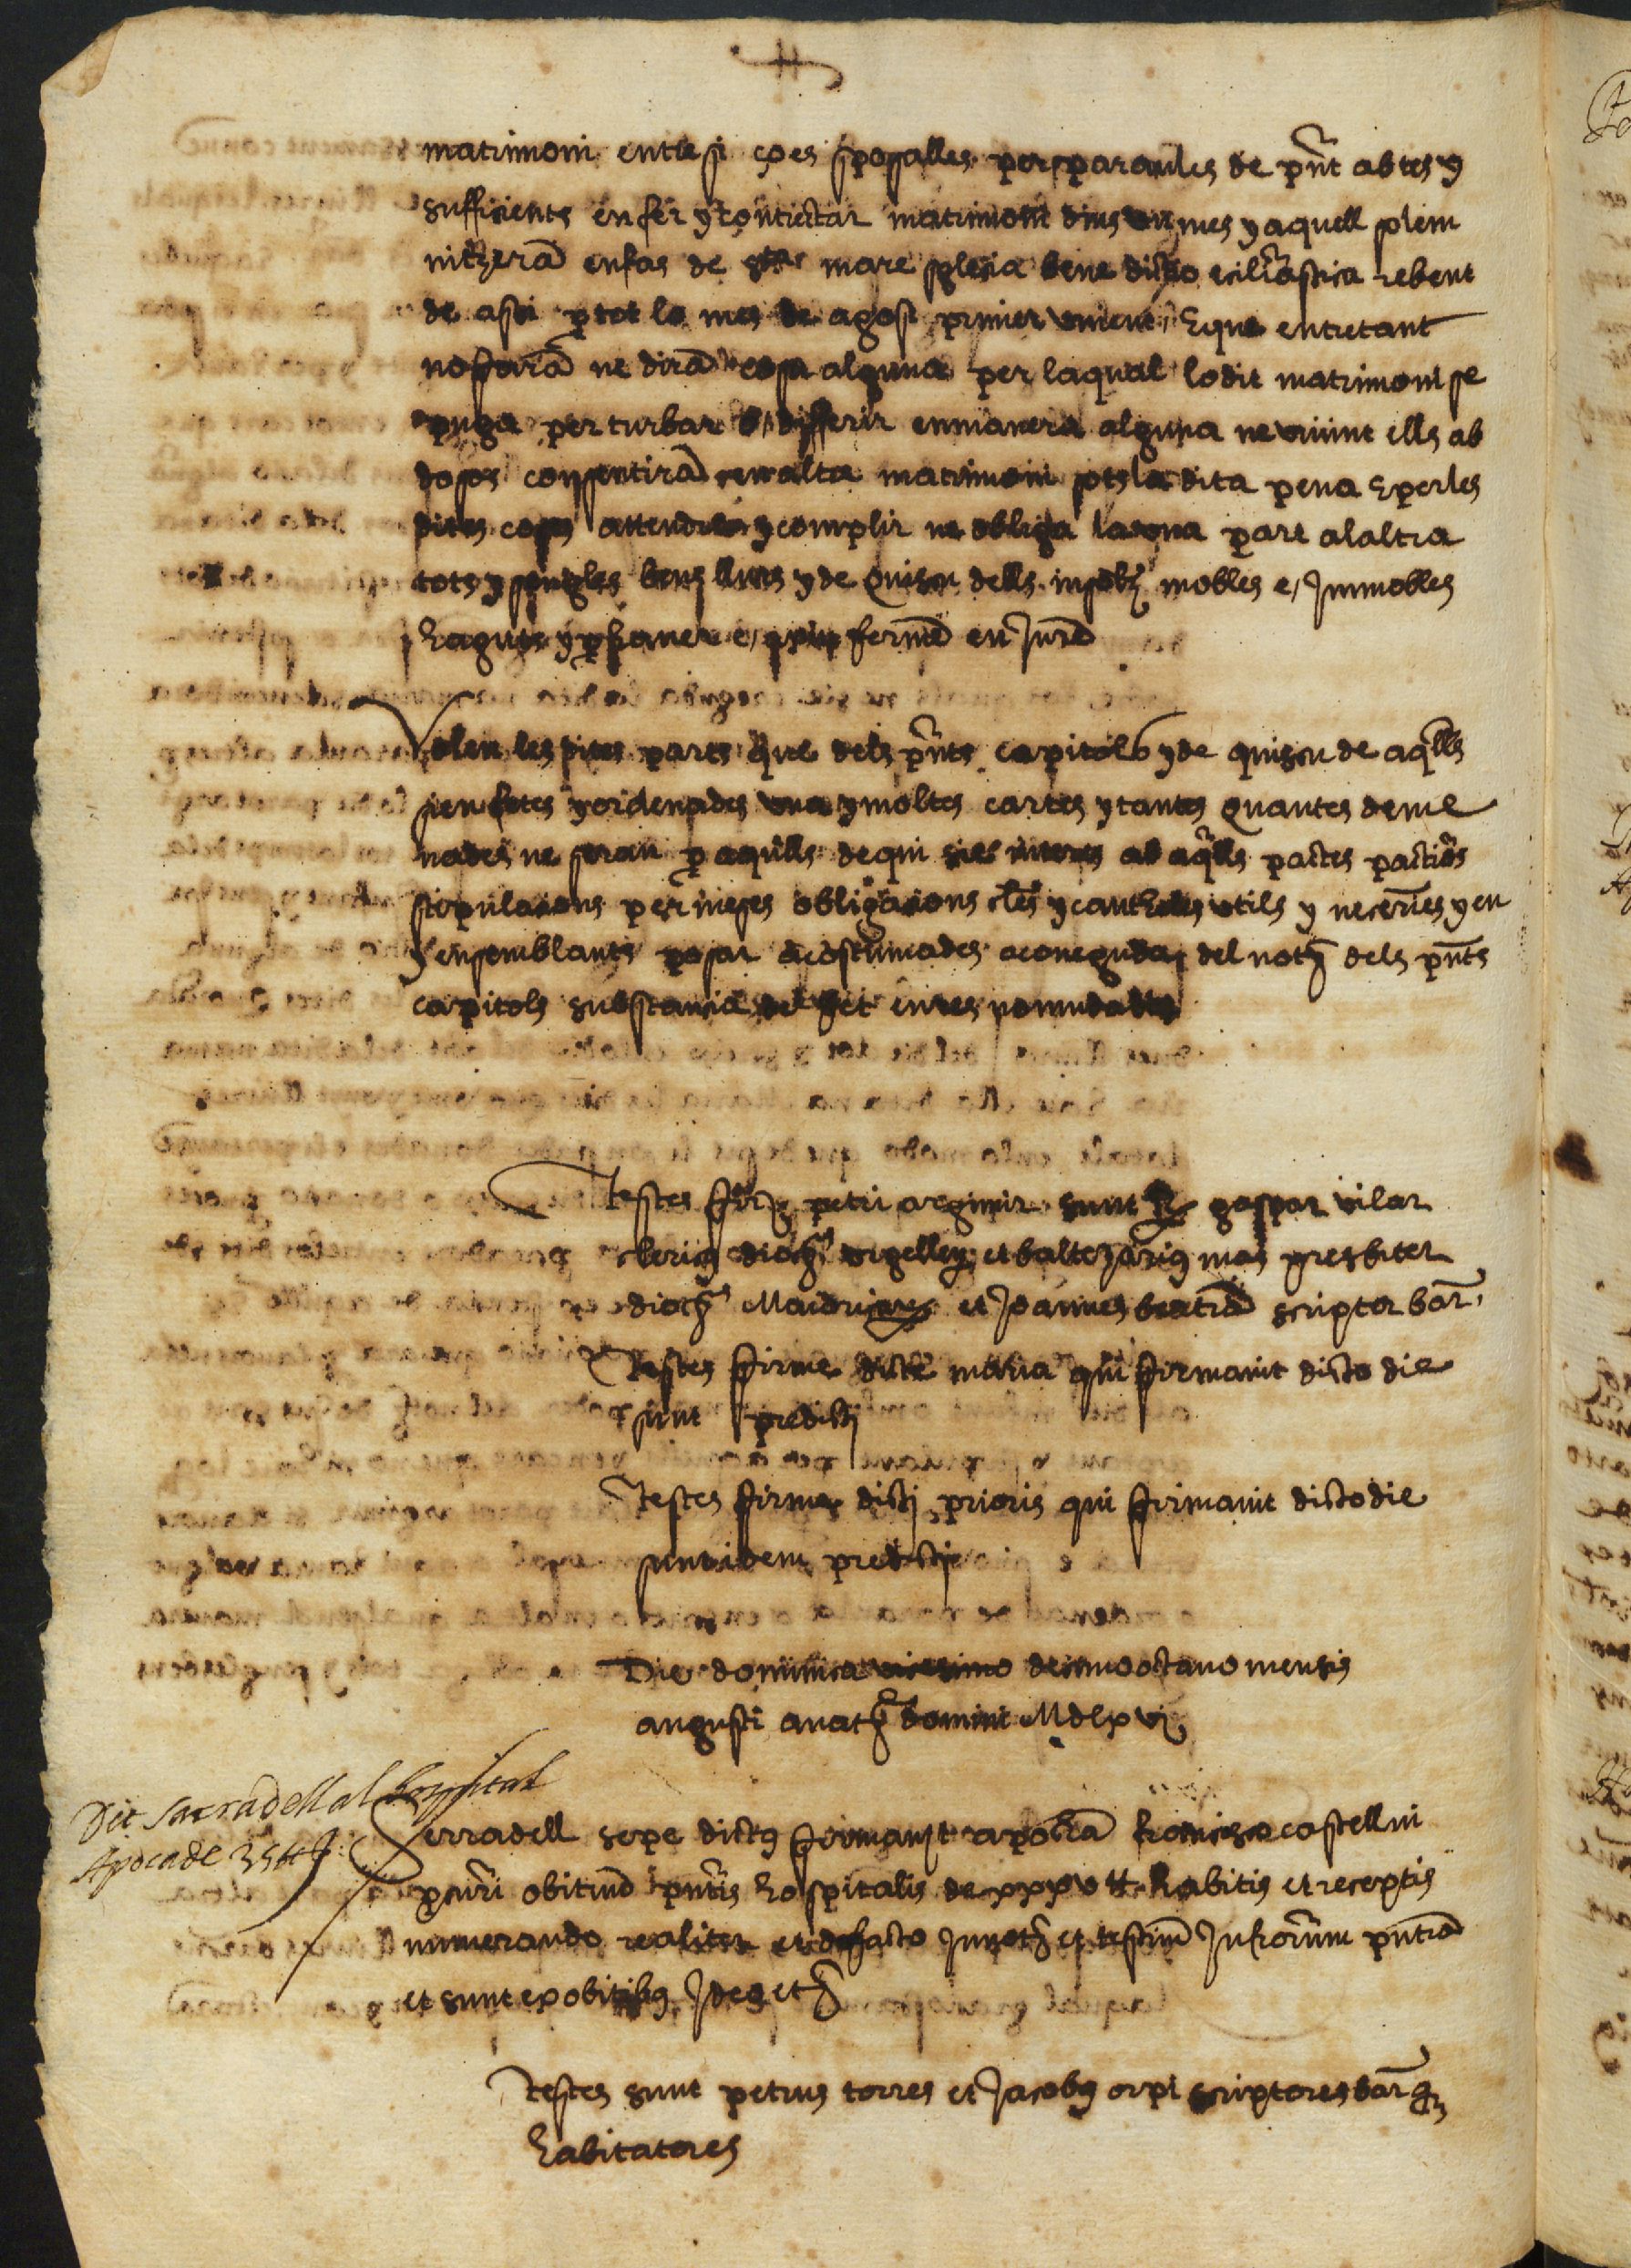 matrimoni entresi ço es sposalles per paraules de pñt abtes y
sufficients en fer y contractar matrimoni dins un mes y aquell solem
nitzerã en fas de sta mare sglesia benedictio eclãstica rebent
de assi p tot lo mes de agost primer vinent, E que entretant
no farã ne dirã cosa alguna per laqual lodit matrimoni se
puga perturbar o differir en manera alguna ne vivint ells ab
dosos consentirã en altre matrimoni sots la dita pena E per les
dites coses attendre y complir ne obliga la una part a laltra
tots y sengles bens llurs y de quiscu dells mobles e Immobles
haguts y p haver e axiu fermẽ en Jurẽ
Volen les dites parts que dels pñts capitols y de quiscu de aq̃lls
sien fetes y ordenades una y moltes cartes y tantes quantes dema
nades ne seran p aquells de qui sie interes ab aq̃lls pactes pactiõs
stipulacions p̃meses obligacions cles y cautheles utils y neceries y en
y ensemblants posar acostumades aconeguda del not dels pñts
capitols substancia del fet en res no mudada
Testes firme petri argimir sunt gaspar vilar
clericus dioc urgellen et baltezarius mas presbiter
dioc Maioricen et Joannes beatriã scriptor bar̃
Testes firme dicte maria qui firmavit dicto die
sunt predicti
Testes firme dicti prioris qui firmavit dicto die
sunt idem predicti
Die dominica vicesimo decimo octavo mensis
augusti anat domini MdLxvi
Dit Serradell al hospital
Apoca de 35 ll
Serradell sepe dictus firmavit apocã francisco castellvi
pcuri obituũ pñtis hospitalis de xxxv ll habitis et receptis
numerando realiter et de facto In not et testium Infrõrum pñtiã
et sunt ex obitibus Ideo etc
Testes sunt petrus torres et Jacobus orpi scriptores bar
habitatores